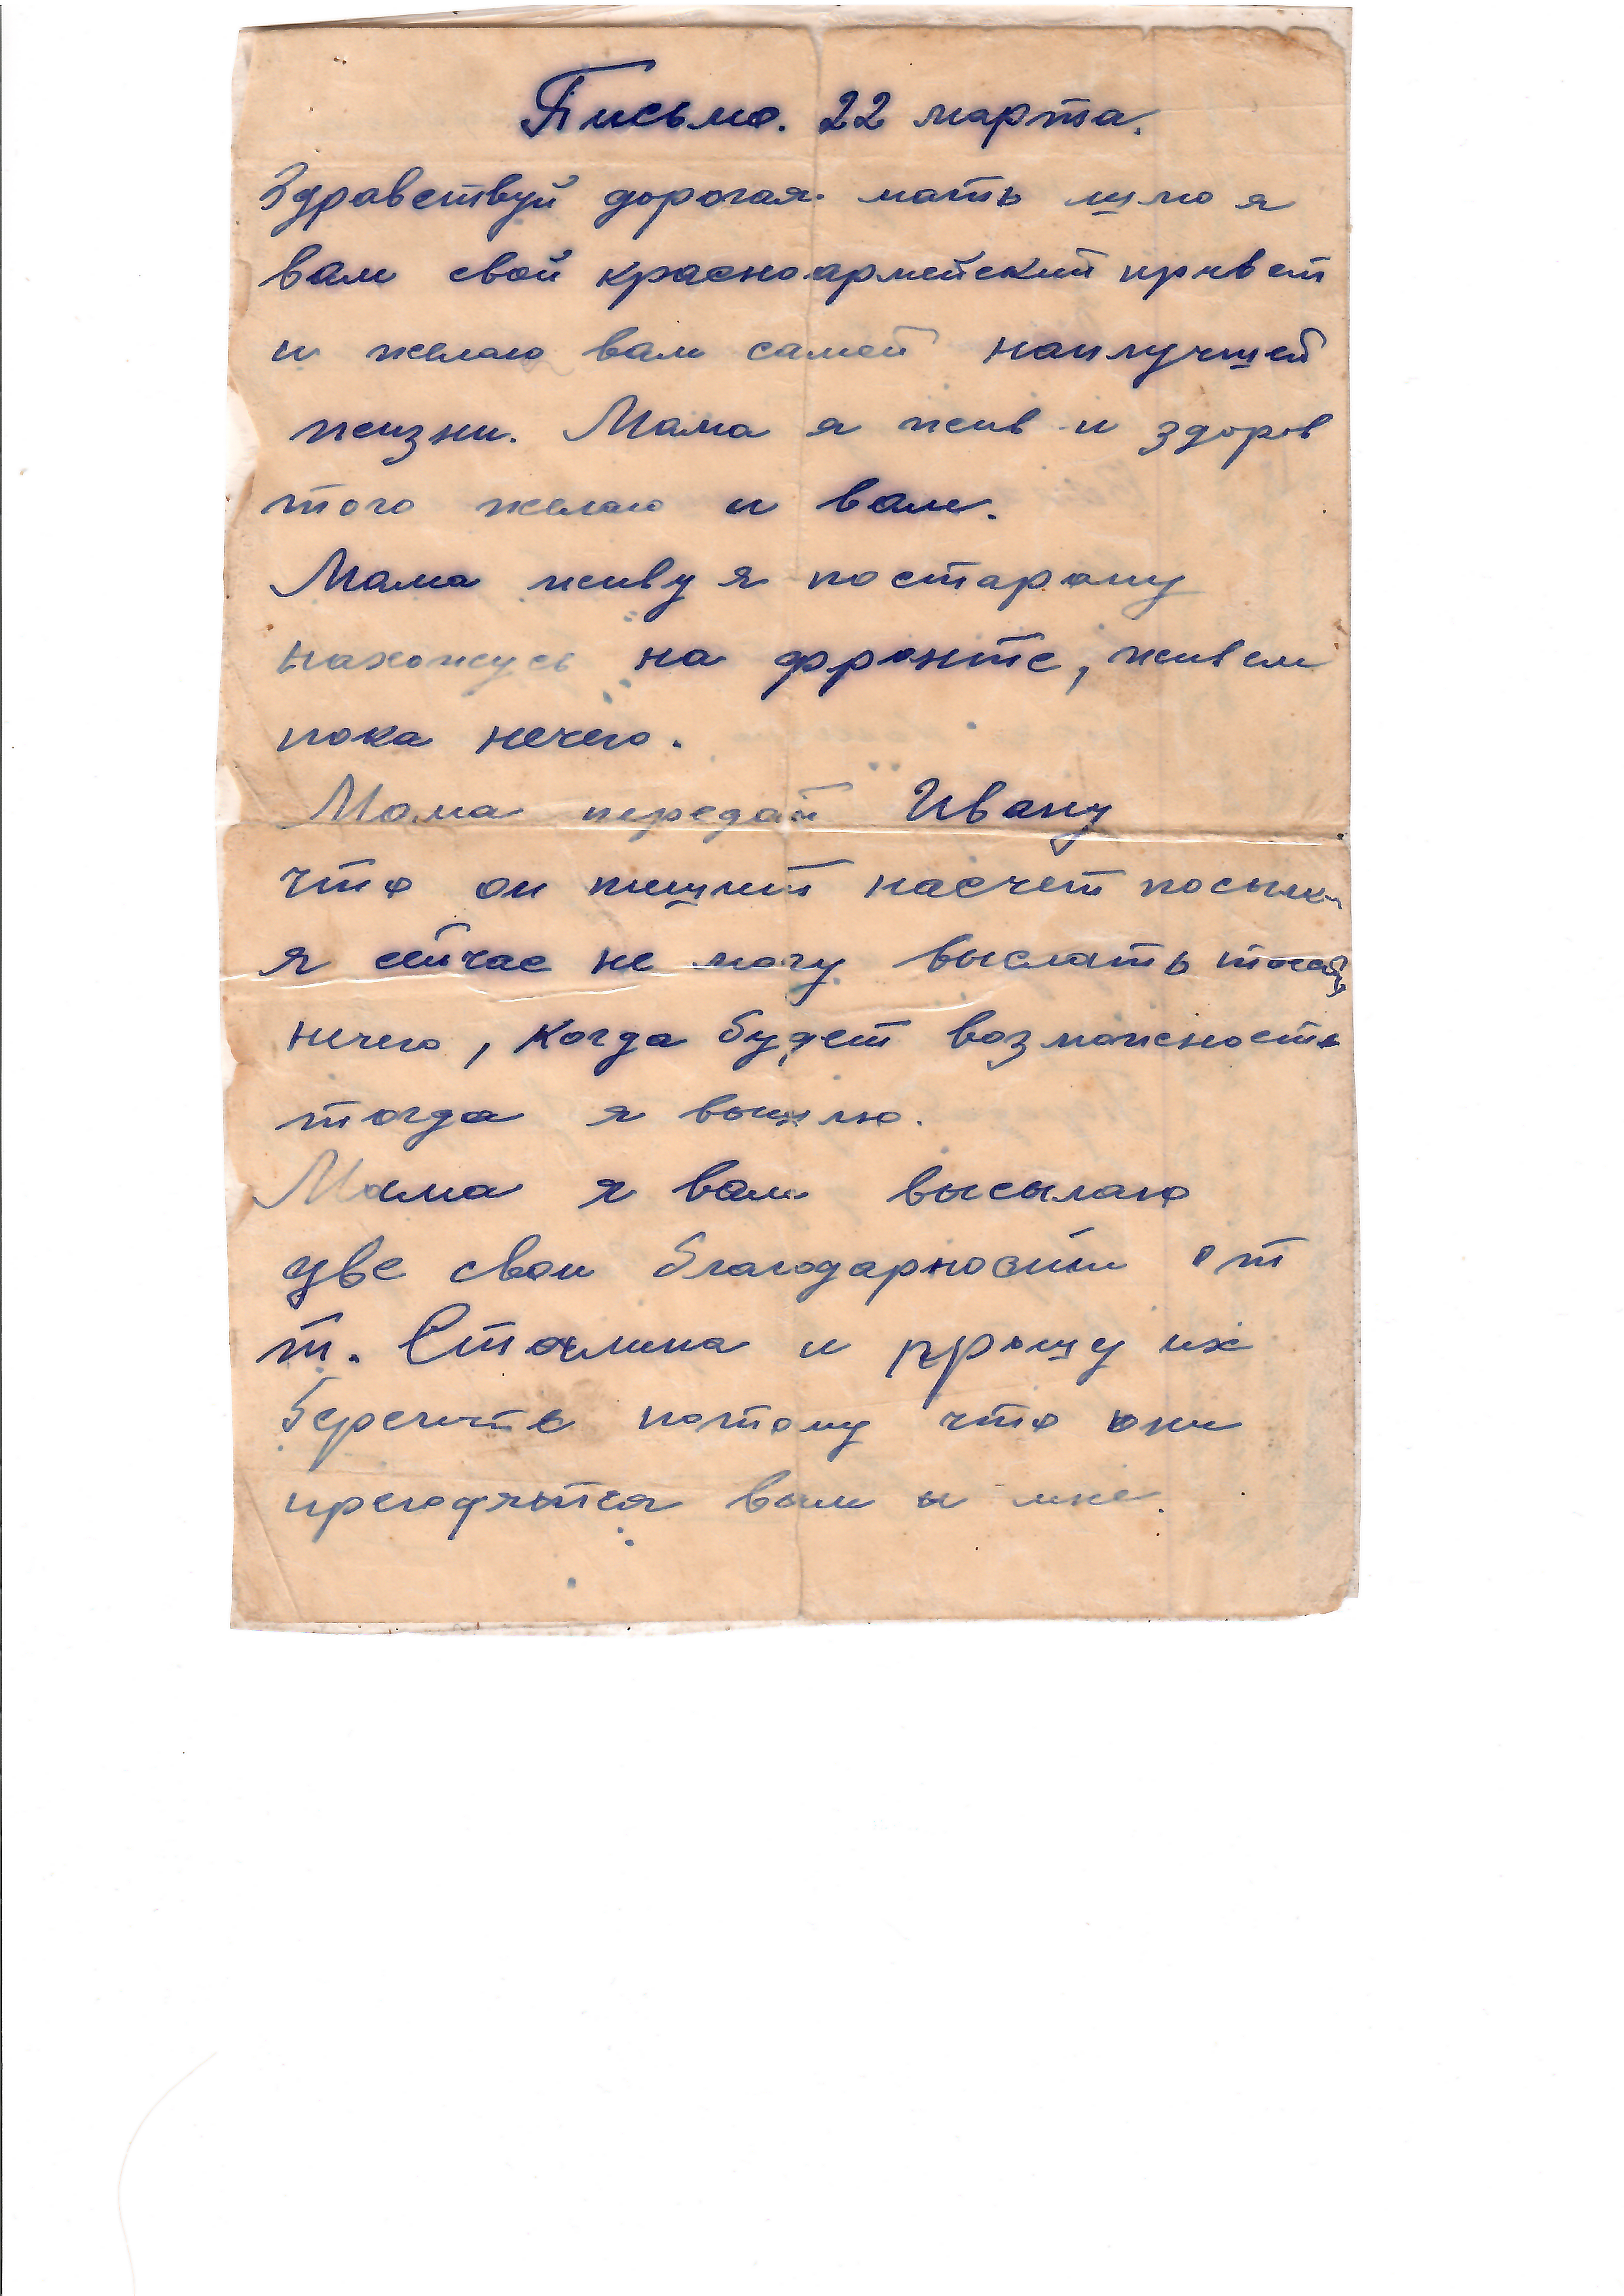 Письмо. 22 марта.
Здравствуй дорогая мать шлю я
вам свой красноармейский привет
и желаю вам самей наилучшей
жизни. Мама я жив и здоров
того желаю и вам.
Мама живу я постарому
нахожусь на фронте, живем
пока нечего.
Мама передай Ивану
что он пишит насчет посылки
я сейчас не могу выслать
нечего, когда будет возможность
тогда я вышлю.
Мама я вам высылаю
две свои благодарности от
т. Сталина и прошу их
беречить потому что они
прегодятся вам и мне.